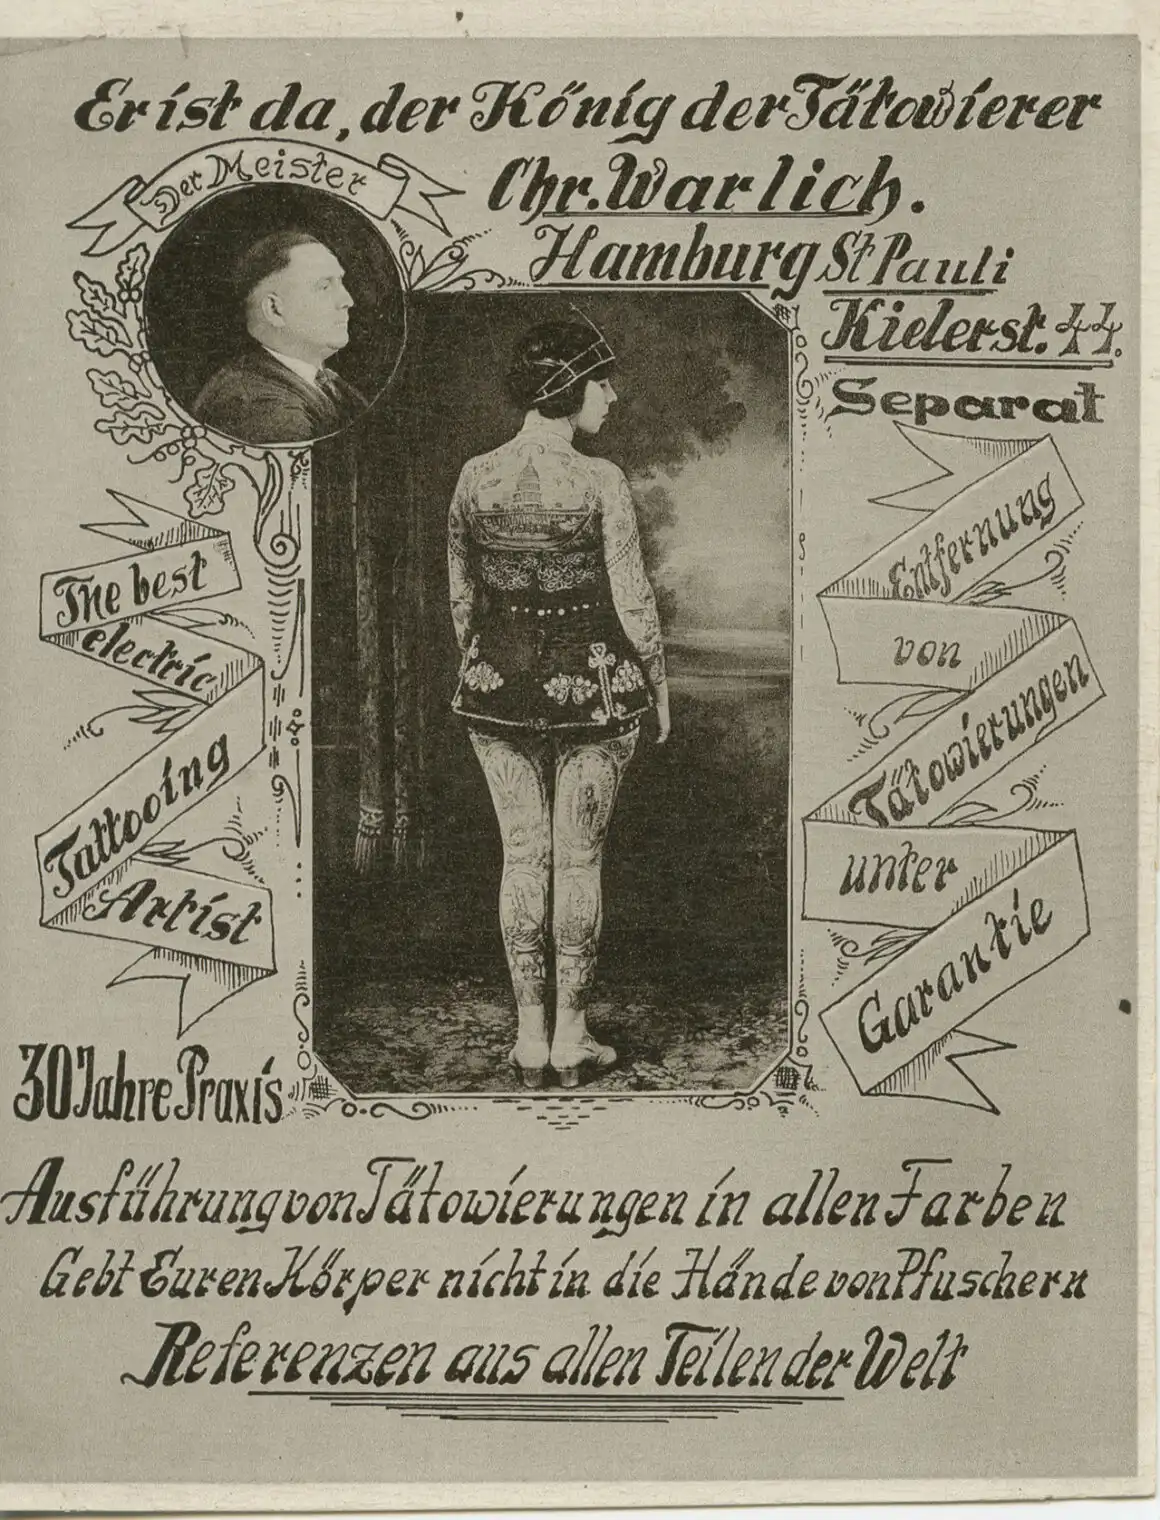 Er ist da, der König der Tätowierer
Der Meister
Chr. Warlich.
Hamburg St Pauli
Kielerst. 44.
Separat
Entfernung
von
Tätowierungen
unter
Garantie
The best
electric
Tattooing
Artist
30 Jahre Praxis
Ausführung von Tätowierungen in allen Farben
Gebt Euren Körper nicht in die Hände von Pfuschern
Referenzen aus allen Teilen der Welt